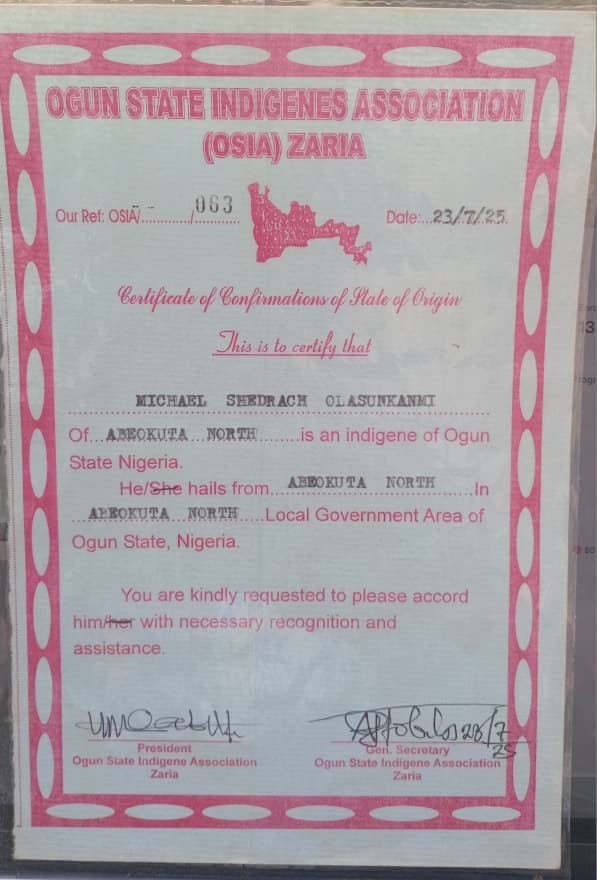 OGUN STATE INDIGENES ASSOCIATION
(OSIA) ZARIA
Our Ref: OSIA/............/ 063
Date:...23/7/25
Certificate of Confirmations of State of Origin
This is to certify that
MICHAEL SHEDRACH OLASUNKANMI
Of...ABEOKUTA NORTH........is an indigene of Ogun
State Nigeria.
He/She hails from...ABEOKUTA NORTH.......In
...ABEOKUTA NORTH.....Local Government Area of
Ogun State, Nigeria.
You are kindly requested to please accord
him/her with necessary recognition and
assistance.
28/7
25
President
Ogun State Indigene Association
Zaria
Gen. Secretary
Ogun State Indigene Association
Zaria